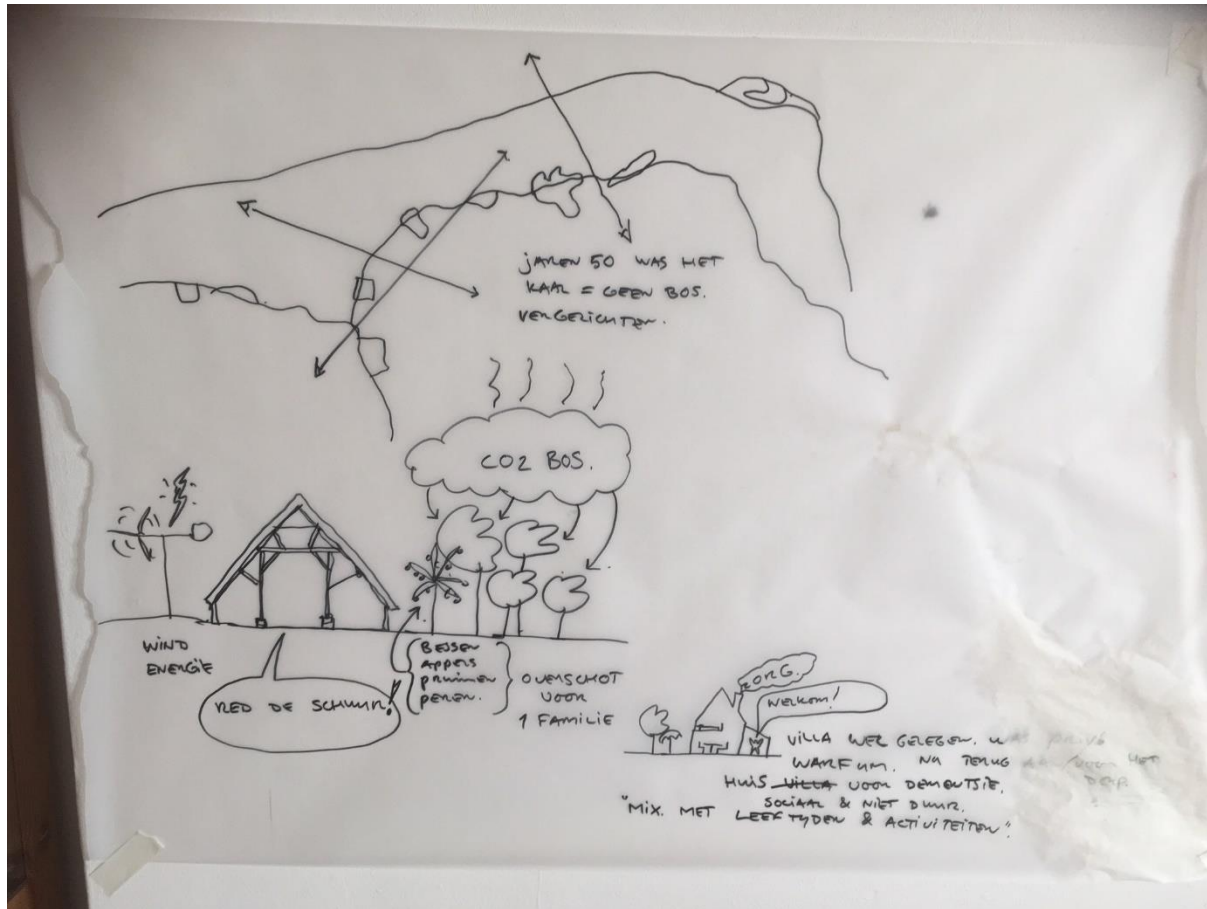 jAREN 50 WAS HET
KAAL = GEEN BOS.
VERGEZICHTEN.
CO2 BOS.
WIND
ENERGIE
RED DE SCHUUR!
BESSEN
APPELS
PRUIMEN
PEREN.
OVERSCHOT
VOOR
1 FAMILIE
ZORG.
WELKOM!
VILLA WEL GELEGEN. WAS PRIVÉ
WARFUM. NU TERUG VOOR HET
DORP.
HUIS VILLA VOOR DEMENTSIE.
SOCIAAL & NIET DUUR.
"MIX. MET LEEFTYDEN & ACTIVITEITEN".